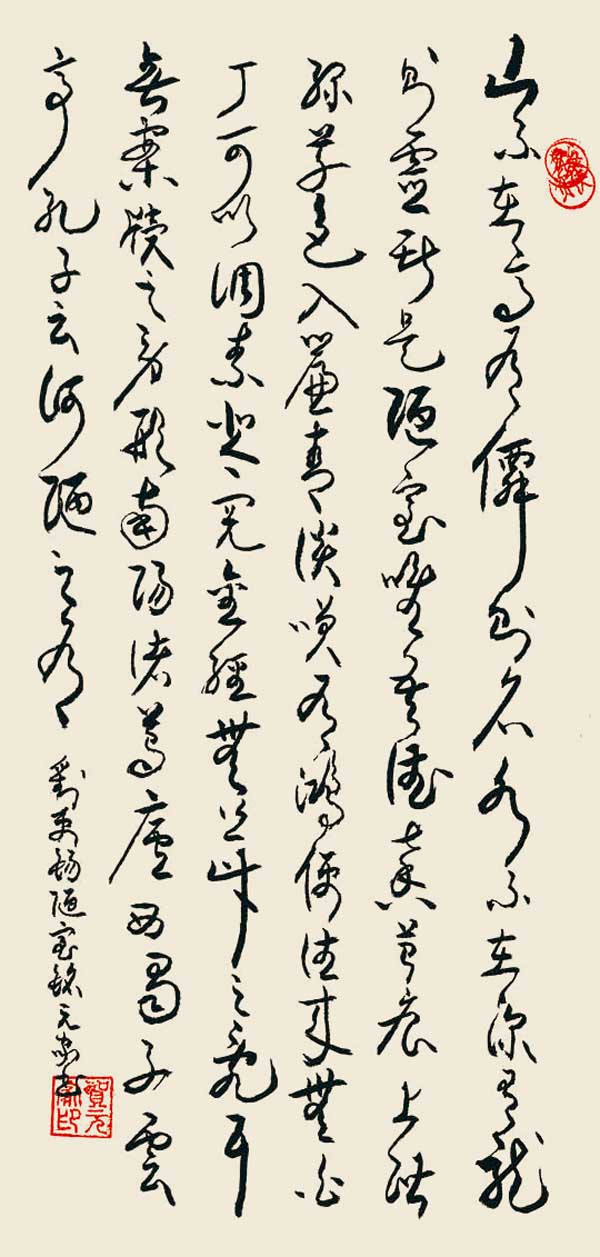 山不在高有僊則名水不在深有龍
則靈斯是陋室唯吾德馨苔痕上階
綠草色入簾青談咲有鴻儒往來無白
丁可以調素琴閱金經無絲竹之亂耳
無案牘之勞形南陽諸葛廬西蜀子雲
亭孔子云何陋之有
劉禹錫陋室銘元書
賀元印